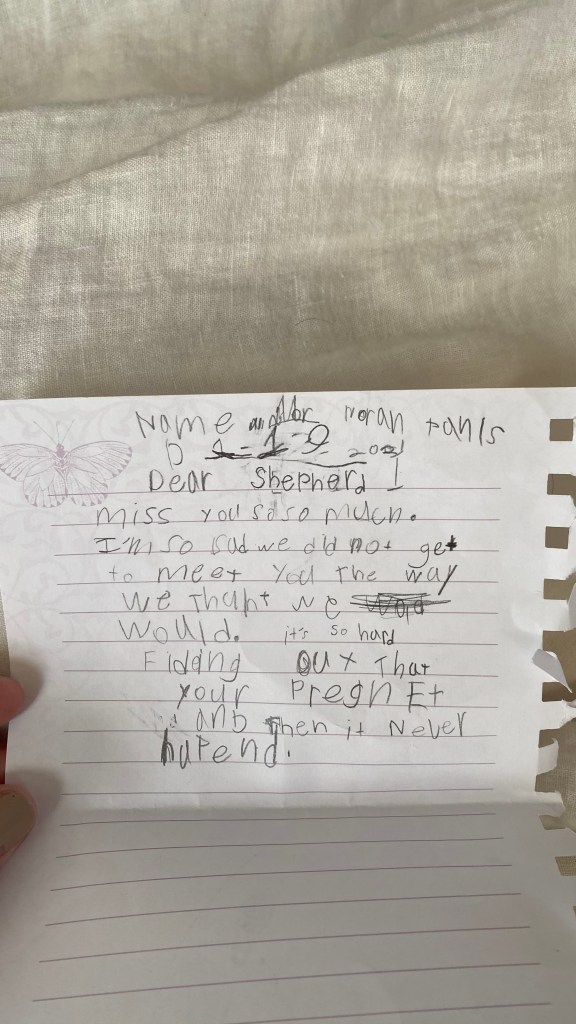 Name Noran tanis
D 1-19 2021
Dear Shepherd I
miss you so so much.
I'm so sad we did not get
to meet you the way
we thapt we
would. it's so hard
Fidding out that
your PregnEt
and then it Never
hapend.